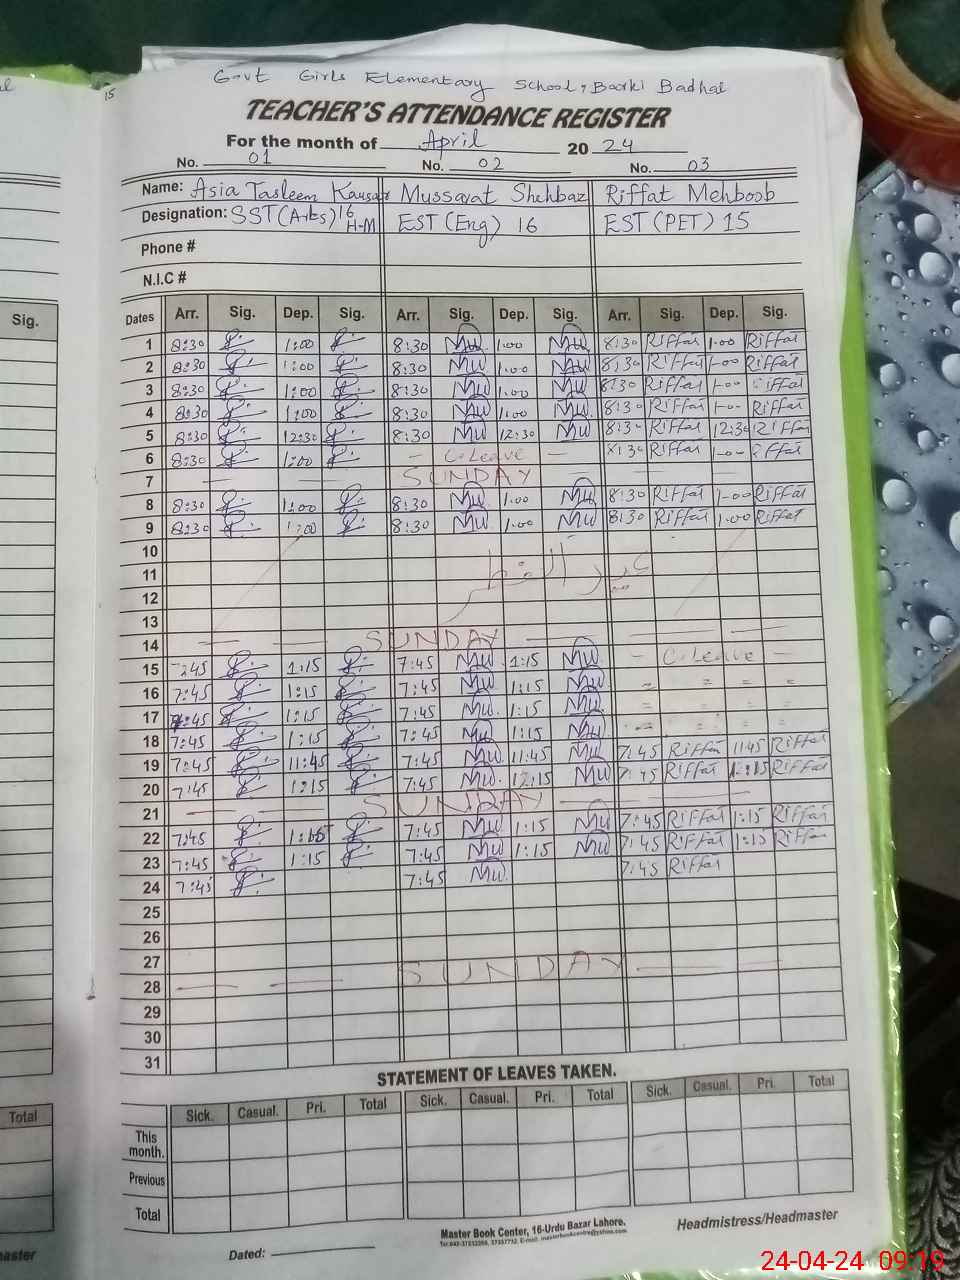 Govt Girls Elementary School, Boorki Badhai
15
TEACHER'S ATTENDANCE REGISTER
For the month of April 20 24
No. 01 No. 02 No. 03
Name: Asia Tasleem Kausar Mussarat Shehbaz Riffat Mehboob
Designation: SST (Arts) 16 H-M EST (Eng) 16 EST (PET) 15
Phone #
N.I.C #
Sig.
Dates Arr. Sig. Dep. Sig. Arr. Sig. Dep. Sig. Arr. Sig. Dep. Sig.
1 8:30 1:00 8:30 Mw 1.00 Mw 8:30 Riffat 1.00 Riffat
2 8:30 1:00 8:30 Mw 1.00 Mw 8:30 Riffat 1-00 Riffat
3 8:30 1:00 8:30 Mw 1.00 Mw 8:30 Riffat 1-00 Riffat
4 8:30 1:00 8:30 Mw 1:00 Mw 8:30 Riffat 1-0- Riffat
5 8:30 12:30 8:30 Mw 12:30 Mw 8:30 Riffat 12:30 Riffat
6 8:30 1:00 - C-Leave - 8:30 Riffat 1-0- Riffat
7 SUNDAY
8 8:30 1:00 8:30 Mw 1.00 Mw 8:30 Riffat 1-00 Riffat
9 8:30 1:00 8:30 Mw 1.00 Mw 8:30 Riffat 1.00 Riffat
10
11 عید الفطر
12
13
14 SUNDAY
15 7:45 1:15 7:45 Mw 1:15 Mw - C-Leave -
16 7:45 1:15 7:45 Mw 1:15 Mw = = = =
17 7:45 1:15 7:45 Mw. 1:15 Mw = = = =
18 7:45 1:15 7:45 Mw 1:15 Mw = = = =
19 7:45 11:45 7:45 Mw 11:45 Mw 7:45 Riffat 11:45 Riffat
20 7:45 1:15 7:45 Mw. 12:15 Mw 7:45 Riffat 1:15 Riffat
21 SUNDAY
22 7:45 1:15 7:45 Mw 1:15 Mw 7:45 Riffat 1:15 Riffat
23 7:45 1:15 7:45 Mw 1:15 Mw 7:45 Riffat 1:15 Riffat
24 7:45 7:45 Mw. 7:45 Riffat
25
26
27
28 SUNDAY
29
30
31
STATEMENT OF LEAVES TAKEN.
Total
Sick. Casual. Pri. Total Sick. Casual. Pri. Total Sick. Casual. Pri. Total
This month.
Previous
Total
Master Book Center, 16-Urdu Bazar Lahore.
Headmistress/Headmaster
Dated:
24-04-24 09:19